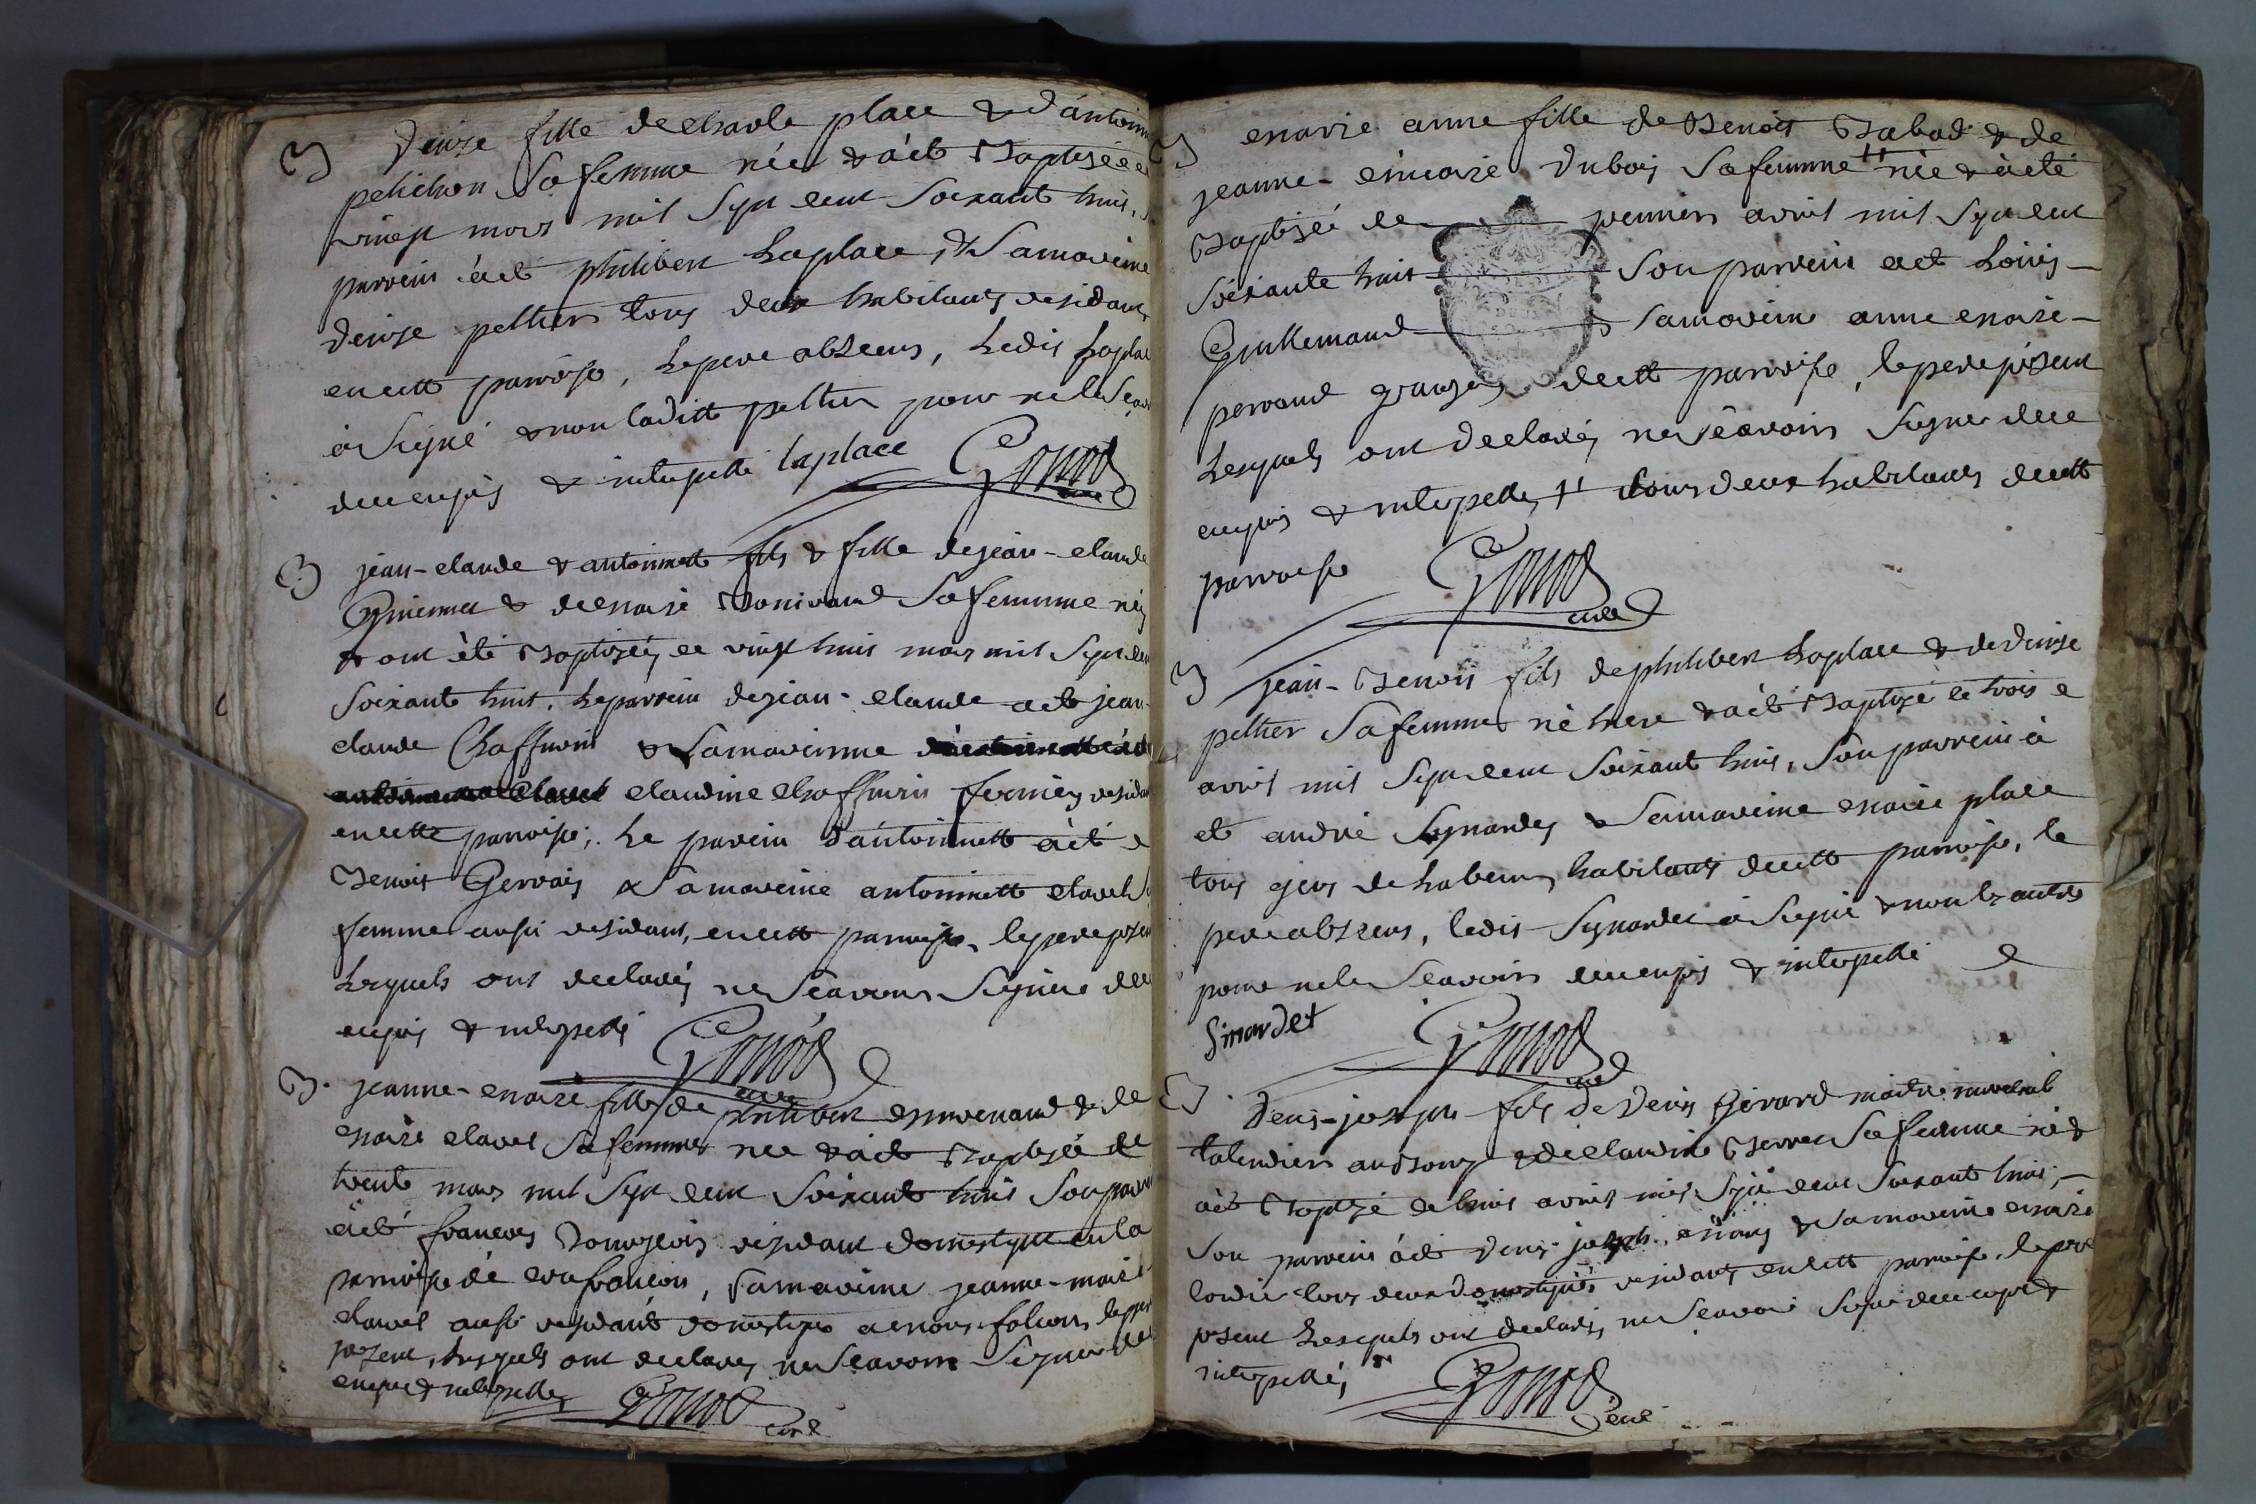 B Denise fille de Charle place & d'antoin
petichon Sa femme née & a été Baptisée
vingt mars mil Sept cent Soixante huit,
parrein a été philibert Laplace, & Sa mareine
denise peltier tous deux habitants residants
en cette parroisse, le pere absens, ledit Laplac
a Signé & non laditte peltier pour ne le Scav
de ce enquis & interpellé laplace Gonod
curé
B jean-claude & antoinette fils & fille de jean-claude
& de marie Sa femme nés
& ont été Baptisés ce vingt huit mars mil Sept cent
Soixante huit, le parrein de jean-claude a été jean-
claude Chaffurin & Sa mareinne
claudine Chaffurin fermiers resida
en cette parroisse; Le parein d'antoinette a été
Benoit Gervais & Sa mareine antoinette clavel S
femme aussi residants en cette parroisse, le pere presen
Lesquels ont declarés ne Scavoir Signer de ce
enquis & interpellés Gonod
curé
B. jeanne-marie fille de philibert & de
marie clavel Sa femme née & a été Baptisée le
trente mars mil Sept cent Soixante huit Son parrei
a été françois Bourgeois residant domestique en la
parroisse de , Sa mareine jeanne-marie
clavel aussi residante domestique , le pere
present, lesquels ont declarés ne Scavoir Signer de ce
enquis & interpellés Gonod
curé
B marie anne fille de Benoit Babad & de
jeanne-marie Dubois Sa femme †† née & a été
Baptisée le premier avril mil Sept cent
Soixante huit Son parrein a été Louis
Guillemaud & Sa mareine anne marie
perraud grangers de cette parroisse, le pere présent
Lesquels ont declarés ne Scavoir Signer de ce
enquis & interpellés †† tous deux habitants de cette
parroisse Gonod
curé
B jean-Benoit fils de philibert Laplace & de denise
peltier Sa femme né hier & a été Baptisé le trois
avril mil Sept cent Soixante huit, Son parrein a
été andré Synardet & Sa mareine marie place
tous gens de labeur, habitants de cette parroisse, le
pere absens, ledit Synardet a Signé & non les autres
pour ne le Scavoir de ce enquis & interpellé
Sinardet Gonod
curé
B. Denis-joseph fils de Denis Girard maitre marechal
taliendier & de claudine Sa femme né &
a été Baptisé le huit avril mil Sept cent Soixante huit,
Son parrein a été Denis-joseph & Sa mareine marie
tous deux domestiques residants en cette parroisse, le pere
present Lesquels ont declarés ne Scavoir Signer de ce enquis &
interpellés Gonod
curé